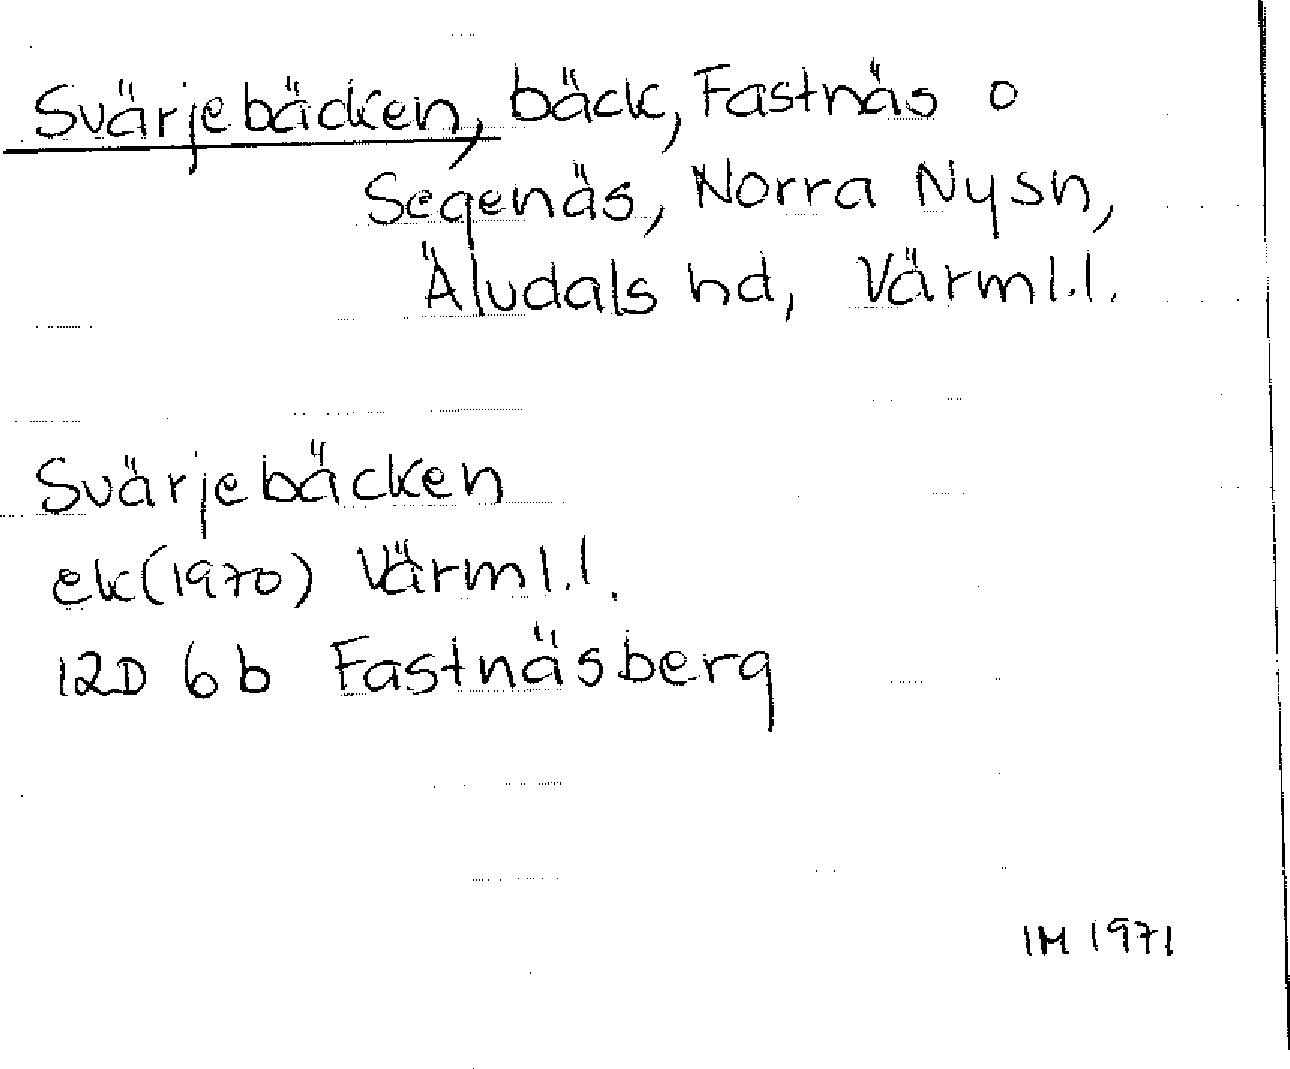 Svärjebäcken, bäck, Fastnäs o
Segenäs, Norra Nysn,
Älvdals hd, Värml.l.
Svärjebäcken
ek(1970) Värml.l.
12D 6b Fastnäsberg
IM 1971